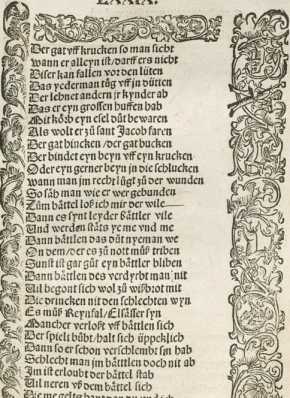 LXXIX.
Der gat vff krucken so man sicht
wann er alleyn ist / darff ers nicht
Diser kan fallen vor den lüten
Das yederman tüg vff jn dütten
Der lehnet andern jr kynder ab
Das er eyn grossen huffen hab
Mit kőrb eyn esel důt bewaren
Als wolt er zů sant Jacob faren
Der gat hincken / der gat bucken
Der bindet eyn beyn vff eyn krucken
Oder eyn gerner beyn in die schlucken
wann man jm recht lůgt zů der wunden
So säh man wie er wer gebunden
Zům båttel loß ich mir der wile
Dann es synt leyder båttler vile
Vnd werden státs ye me vnd me
Dann båttlen das důt nyeman we
On dem / der es zů nott můß triben
Sunst ist gar gůt eyn båttler bliben
Dann båttlen des verdyrbt man nit
Vil begont sich wol zů wißbrot mit
Die drincken nit den schlechten wyn
Es můß Reynfal / Elsåsser syn
Mancher verloßt vff båttlen sich
Der spielt / bůbt / halt sich üppeklich
Dann so er schon verschlembt syn hab
Schlecht man jm båttlen doch nit ab
Im ist erloubt der båttel stab
Vil neren vß dem båttel sich
Die me gelts hant dan du vnd ich